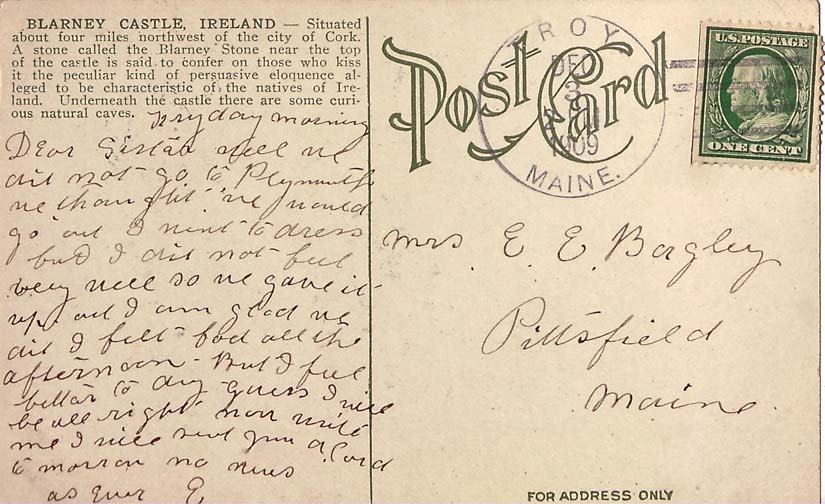 BLARNEY CASTLE, IRELAND — Situated
about four miles northwest of the city of Cork.
A stone called the Blarney Stone near the top
of the castle is said to confer on those who kiss
it the peculiar kind of persuasive eloquence al-
leged to be characteristic of the natives of Ire-
land. Underneath the castle there are some curi-
ous natural caves.
Fryday morning
Dear Sister well we
did not go to Plymouth
we thought we would
go and I went to dress
but I did not feel
very well so we gave it
up and I am glad we
did I felt bad all the
afternoon. But I feel
better to day guess I will
be all right now write
me I will send you a Card
to morrow no news
as ever E
Post Card
TROY
DEC
3
1909
MAINE.
U.S. POSTAGE
ONE CENT
Mrs E. E. Bagley
Pittsfield
Maine.
FOR ADDRESS ONLY